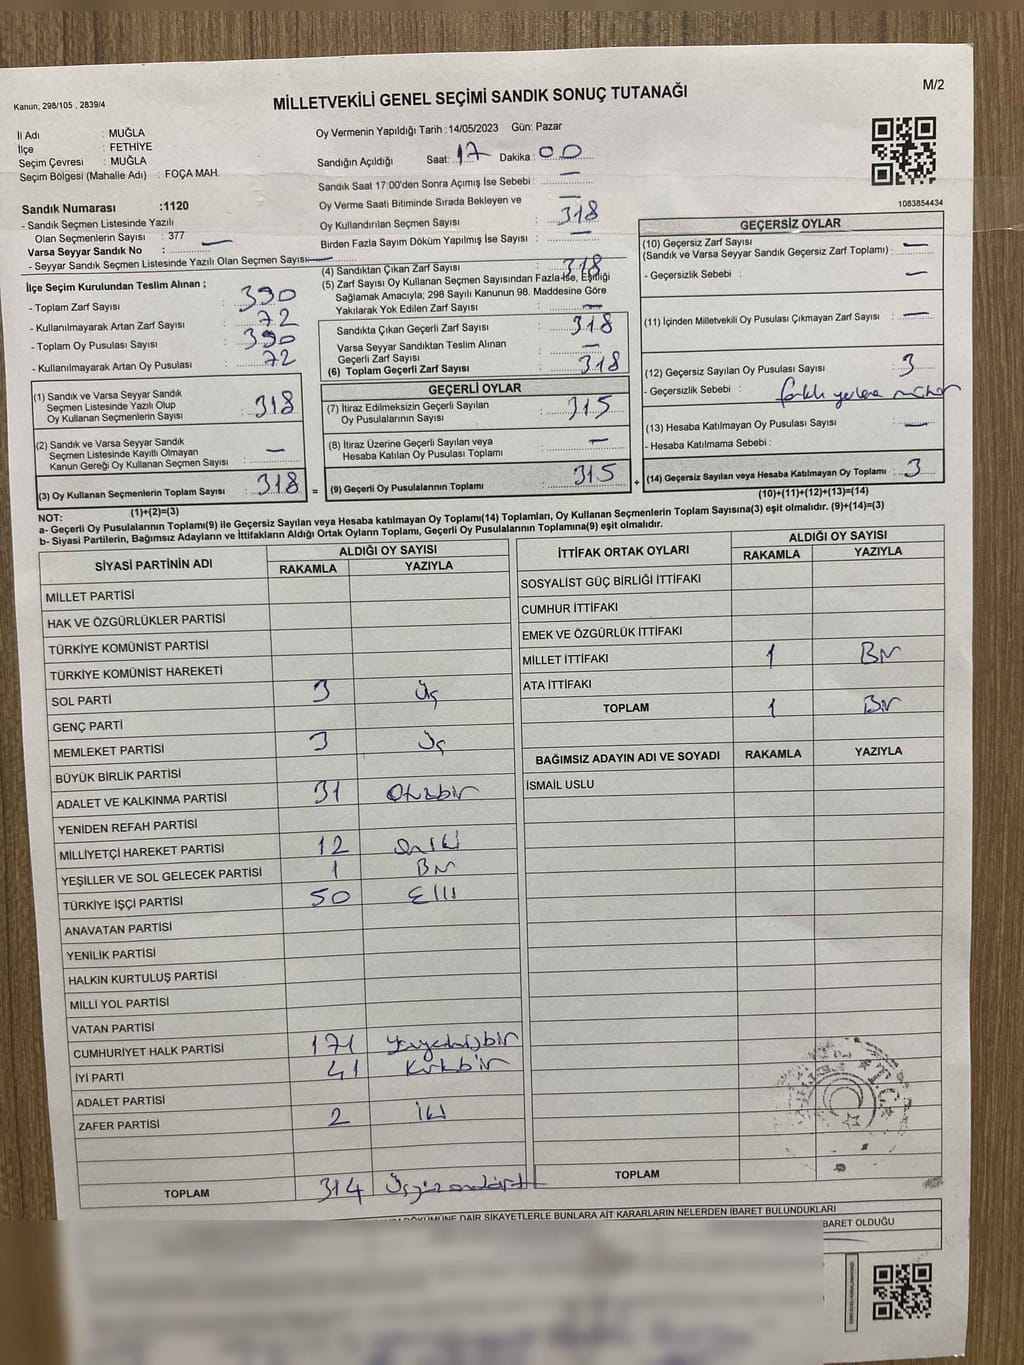 Kanun, 298/105 , 2839/4
MİLLETVEKİLİ GENEL SEÇİMİ SANDIK SONUÇ TUTANAĞI
M/2
İl Adı : MUĞLA
İlçe : FETHİYE
Seçim Çevresi : MUĞLA
Seçim Bölgesi (Mahalle Adı) : FOÇA MAH.
Sandık Numarası :1120
- Sandık Seçmen Listesinde Yazılı
Olan Seçmenlerin Sayısı : 377
Varsa Seyyar Sandık No : —
- Seyyar Sandık Seçmen Listesinde Yazılı Olan Seçmen Sayısı: —
Oy Vermenin Yapıldığı Tarih :14/05/2023 Gün: Pazar
Sandığın Açıldığı Saat: 17 Dakika : 00
Sandık Saat 17:00'den Sonra Açımış İse Sebebi : —
Oy Verme Saati Bitiminde Sırada Bekleyen ve —
Oy Kullandırılan Seçmen Sayısı : 318
Birden Fazla Sayım Döküm Yapılmış İse Sayısı : —
1083854434
İlçe Seçim Kurulundan Teslim Alınan ;
- Toplam Zarf Sayısı : 390
- Kullanılmayarak Artan Zarf Sayısı : 72
- Toplam Oy Pusulası Sayısı : 390
- Kullanılmayarak Artan Oy Pusulası : 72
(1) Sandık ve Varsa Seyyar Sandık
Seçmen Listesinde Yazılı Olup
Oy Kullanan Seçmenlerin Sayısı : 318
(2) Sandık ve Varsa Seyyar Sandık
Seçmen Listesinde Kayıtlı Olmayan
Kanun Gereği Oy Kullanan Seçmen Sayısı : —
(3) Oy Kullanan Seçmenlerin Toplam Sayısı : 318
(1)+(2)=(3)
(4) Sandıktan Çıkan Zarf Sayısı : 318
(5) Zarf Sayısı Oy Kullanan Seçmen Sayısından Fazla İse, Eşitliği
Sağlamak Amacıyla; 298 Sayılı Kanunun 98. Maddesine Göre
Yakılarak Yok Edilen Zarf Sayısı : —
Sandıkta Çıkan Geçerli Zarf Sayısı : 318
Varsa Seyyar Sandıktan Teslim Alınan
Geçerli Zarf Sayısı : —
(6) Toplam Geçerli Zarf Sayısı : 318
GEÇERLİ OYLAR
(7) İtiraz Edilmeksizin Geçerli Sayılan
Oy Pusulalarının Sayısı : 315
(8) İtiraz Üzerine Geçerli Sayılan veya
Hesaba Katılan Oy Pusulası Toplamı : —
= (9) Geçerli Oy Pusulalarının Toplamı : 315
GEÇERSİZ OYLAR
(10) Geçersiz Zarf Sayısı
(Sandık ve Varsa Seyyar Sandık Geçersiz Zarf Toplamı) : —
- Geçersizlik Sebebi : —
(11) İçinden Milletvekili Oy Pusulası Çıkmayan Zarf Sayısı : —
(12) Geçersiz Sayılan Oy Pusulası Sayısı : 3
- Geçersizlik Sebebi : farklı yerlere
(13) Hesaba Katılmayan Oy Pusulası Sayısı : —
- Hesaba Katılmama Sebebi :
+ (14) Geçersiz Sayılan veya Hesaba Katılmayan Oy Toplamı : 3
(10)+(11)+(12)+(13)=(14)
NOT:
a- Geçerli Oy Pusulalarının Toplamı(9) ile Geçersiz Sayılan veya Hesaba katılmayan Oy Toplamı(14) Toplamları, Oy Kullanan Seçmenlerin Toplam Sayısına(3) eşit olmalıdır. (9)+(14)=(3)
b- Siyasi Partilerin, Bağımsız Adayların ve İttifakların Aldığı Ortak Oyların Toplamı, Geçerli Oy Pusulalarının Toplamına(9) eşit olmalıdır.
SİYASİ PARTİNİN ADI
ALDIĞI OY SAYISI
RAKAMLA YAZIYLA
MİLLET PARTİSİ
HAK VE ÖZGÜRLÜKLER PARTİSİ
TÜRKİYE KOMÜNİST PARTİSİ
TÜRKİYE KOMÜNİST HAREKETİ
SOL PARTİ 3 Üç
GENÇ PARTİ
MEMLEKET PARTİSİ 3 Üç
BÜYÜK BİRLİK PARTİSİ
ADALET VE KALKINMA PARTİSİ 31 Otuzbir
YENİDEN REFAH PARTİSİ
MİLLİYETÇİ HAREKET PARTİSİ 12 oniki
YEŞİLLER VE SOL GELECEK PARTİSİ 1 Bir
TÜRKİYE İŞÇİ PARTİSİ 50 Elli
ANAVATAN PARTİSİ
YENİLİK PARTİSİ
HALKIN KURTULUŞ PARTİSİ
MİLLİ YOL PARTİSİ
VATAN PARTİSİ
CUMHURİYET HALK PARTİSİ 171 Yüzyetmişbir
İYİ PARTİ 41 Kırkbir
ADALET PARTİSİ
ZAFER PARTİSİ 2 İki
TOPLAM 314 Üçyüzondört
İTTİFAK ORTAK OYLARI
ALDIĞI OY SAYISI
RAKAMLA YAZIYLA
SOSYALİST GÜÇ BİRLİĞİ İTTİFAKI
CUMHUR İTTİFAKI
EMEK VE ÖZGÜRLÜK İTTİFAKI
MİLLET İTTİFAKI 1 Bir
ATA İTTİFAKI
TOPLAM 1 Bir
BAĞIMSIZ ADAYIN ADI VE SOYADI RAKAMLA YAZIYLA
İSMAİL USLU
T.C.
TOPLAM
DÖKÜMÜNE DAİR ŞİKAYETLERLE BUNLARA AİT KARARLARIN NELERDEN İBARET BULUNDUKLARI
İBARET OLDUĞU